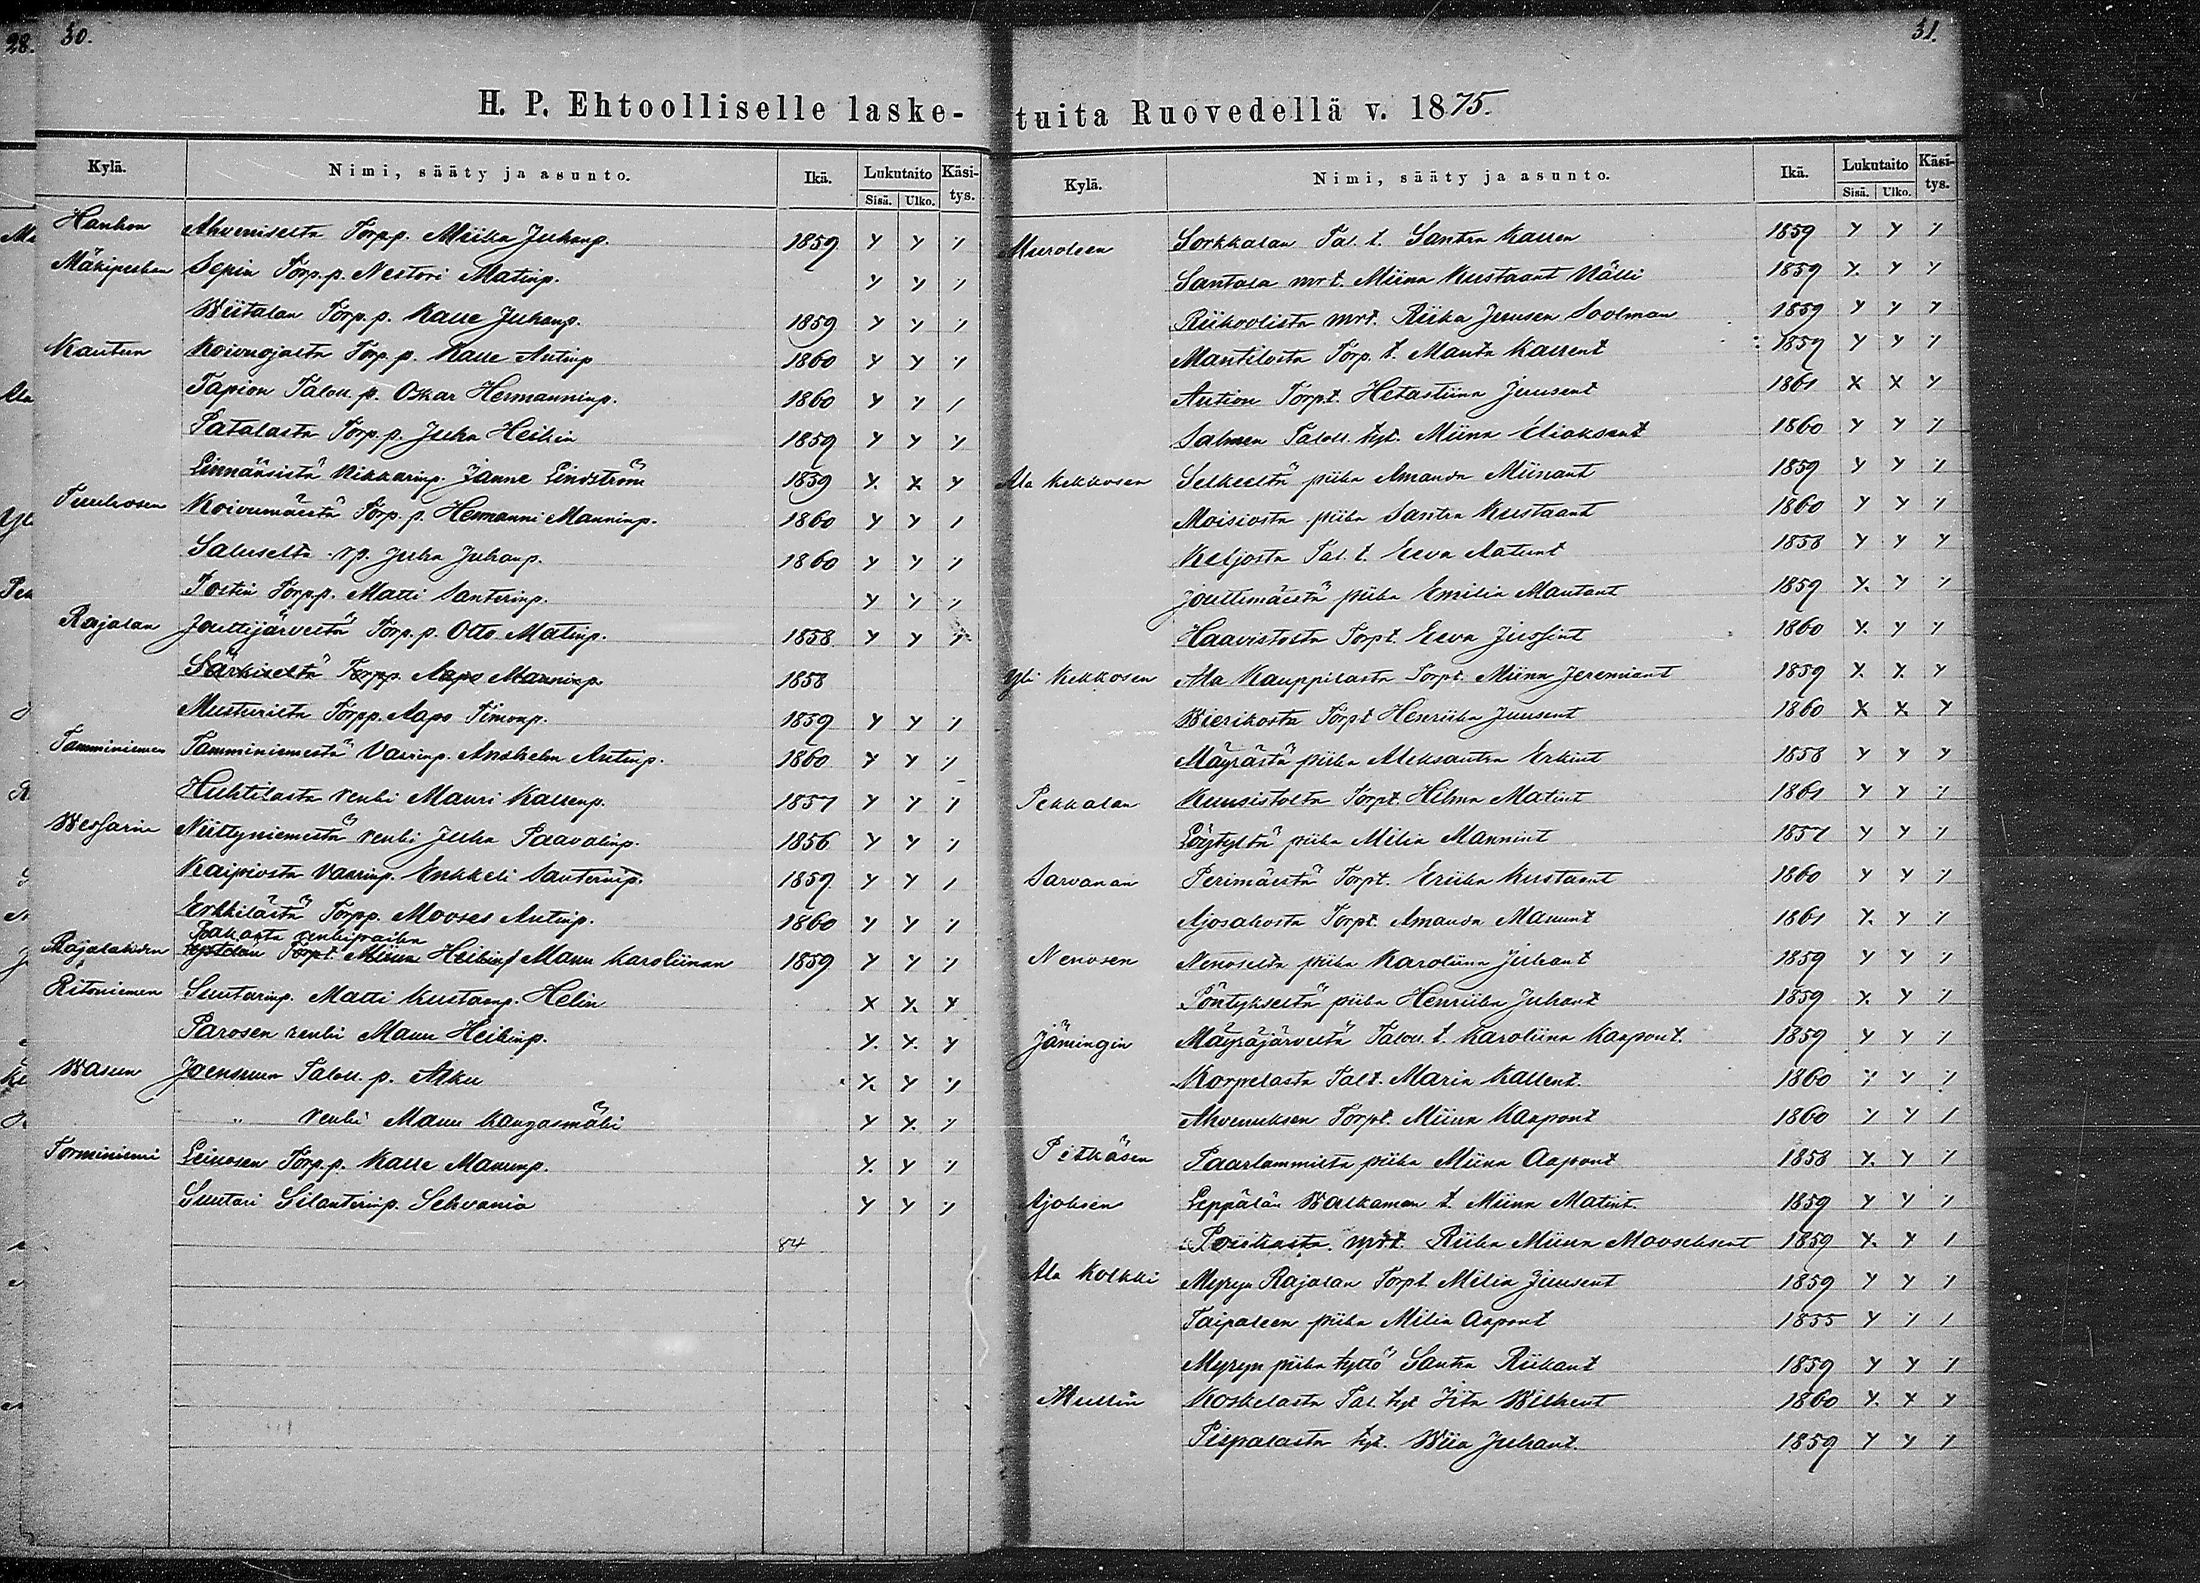 30.
H. P. Ehtoolliselle laske-
Kylä. Nimi, sääty ja asunto. Ikä. Lukutaito Käsi-
Sisä. Ulko. tys.
Hanhon Ahveniselta Torp.p. Miika Juhanp. 1859
Mäkipelkan Sepin Torp.p. Nestori Matinp.
Wiitalan Torp.p. Kalle Juhanp. 1859
Kautun Koivuojasta Torp.p. Kalle Antinp 1860
Tapion Talol. p. Oskar Hermanninp. 1860
Patalasta Torp.p. Juha Heikin 1859
Linnänsistä Nikkarinp. Janne Lindström 1859
Tuuhosen Koivumäestä Torp.p. Hermanni Manninp. 1860
Saluselta rp. Juha Juhanp. 1860
Postin Torp.p. Matti Santerinp.
Rajalan Jouttijärveltä Torp.p. Otto Matinp. 1858
Särkiseltä Torp.p. Aapo Manninp. 1858
Musturilta Torp.p. Aapo Simonp. 1859
Tamminiemen Tamminiemestä Vaarinp. Anshelm Antinp. 1860
Huhtilasta renki Mauri Kallenp. 1857
Wessarin Niittyniemestä renki Juha Paavalinp. 1856
Kaipiosta Vaarinp. Enkkeli Santerinp. 1859
Erkkilästä Torp.p. Mooses Antinp. 1860
renkipoika
Rajalahden Torp.t. Miina Heikint Manu Karoliinan 1859
Ritoniemen Suutarinp. Matti Kustaanp. Helin
Parosen renki Manu Heikinp.
Wasun Joensuun Talol. p. Alku
" renki Manu Kangasmäki
Torminiemi Leinosen Torp.p. Kalle Manunp.
Suutari Silanterinp. Sehvania
84
31.
tuita Ruovedellä v. 1875.
Kylä. Nimi, sääty ja asunto. Ikä. Lukutaito Käsi-
Sisä. Ulko. tys.
Muroleen Sorkkalan Tal. t. Santra Kallen 1859
Santala mrt. Miina Kustaant Nälli 1859
Riikoolista mrt. Riika Juusen Soolman 1859
Mantilosta Torp. t. Manta Kallent 1859
Aution Torp.t. Hetastiina Juusent 1861
Salmen Talol. tyt. Miina Eliaksent 1860
Ala Kekkosen Selkeeltä piika Amanda Miinant 1859
Moisiosta piika Santra Kustaant 1860
Keljosta Tal. t. Eeva Aatunt 1858
Jouttimäestä piika Emilia Mantant 1859
Haavistosta Torpt. Eeva Jussint 1860
Yli Kekkosen Ala Kauppilasta Torpt. Miina Jeremiant 1859
Wierikosta Torpt Henriika Juusent 1860
Mäyrästä piika Aleksantra Erkint 1858
Pekkalan Kuusistolta Torpt. Hilma Matint 1861
Löytyltä piika Milia Mannint 1857
Sarvanan Perimäestä Torpt. Eriika Kustaant 1860
Ajosahosta Torpt. Amanda Manunt 1861
Nenosen Nenoselta piika Karoliina Juhant 1859
Pöntykseltä piika Henriika Juhant 1859
Jämingin Mäyräjärveltä Talol. t. Karoliina Kaapont. 1859
Korpelasta Talt. Maria Kallent 1860
Ahvenuksen Torpt. Miina Kaapont 1860
Pitkäsen Paarlammista piika Miina Aapont 1858
Ajoksen Leppälän Walkaman t. Miina Matint. 1859
Pouihasta mrt. Riika Miina Mooseksent 1859
Ala Kolkki Myryn Rajalan Torpt Milia Juusent 1859
Taipaleen piika Milia Aapont 1855
Myryn piika tyttö Santra Riikant 1859
Mullin Koskelasta Tal. tyt Iita Wilhent 1860
Pispalasta tyt. Wiia Juhant 1859